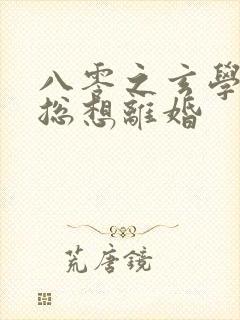 八零之玄學
總想離婚
荒唐鏡